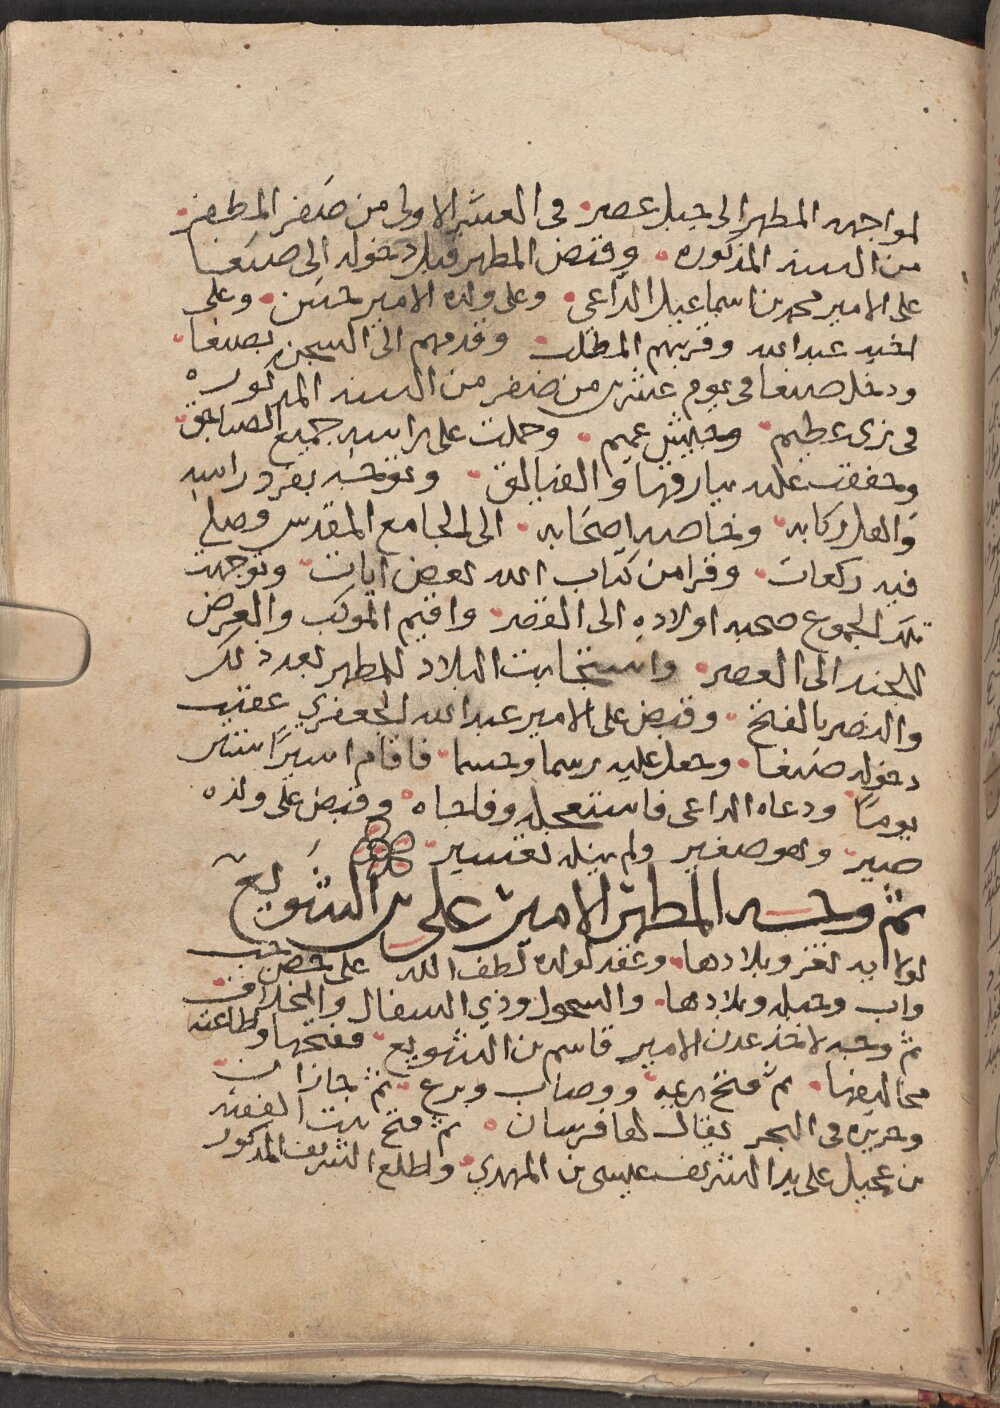 لمواجهه المطهر الى جبل عصر في العشر الاولى من صفر المظفر
من السنه المذكوره وقبض المطهر قبل دخوله الى صنعا
على الامير محمد بن اسماعيل الداعي وعلى ولده الامير حسن وعلى
اخيه عبدالله وقريبهم المطلب وقدمهم الى السجن بصنعا
ودخل صنعا في يوم عشرين من صفر من السنه المذكوره
في زي عظيم وجيش عميم وحملت على راسه جميع الصناجق
وخفقت عليه بيارقها والفيالق وتوجه بفرد راسه
واهل ركابه وخاصه اصحابه الى الجامع المقدس وصلى
فيه ركعات وقرا من كتاب الله بعض ايات وتوجهت
تلك الجموع صحبه اولاده الى القصر واقيم الموكب والعرض
للجند الى العصر واستجابت البلاد للمطهر بعد ذلك
والنصر بالفتح وقبض على الامير عبدالله الجعفري عقيب
دخوله صنعا وجعل عليه رسما وحبسا فاقام اسيرا ستين
يوما ودعاه الداعي فاستعجله وفاجاه وقبض على ولده
صبر وهو صغير ولم ينله تعسير
ثم وجه المطهر الامير علي بن الشويع
لولايه تعز وبلادها وعقد لولده لطف الله على حصن حب
واب وجبله وبلادها والسحول وذي السفال والمخلاف
ثم وجه لاخذ عدن الامير قاسم بن الشويع ففتحها واطاعته
مخاليفها ثم فتح ريمه ووصاب وبرع ثم جازان
وجزيره في البحر يقال لها فرسان ثم فتح بيت الفقيه
بن عجيل على يد الشريف عيسى بن المهدي واطلع الشريف المذكور